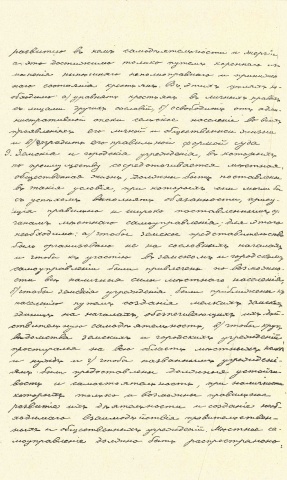 развитію въ немъ самодѣятельности и энергіи,
а это достижимо только путемъ коренного из-
мѣненія нынѣшняго неполноправнаго и принижен-
наго состоянія крестьянъ. Въ этихъ цѣляхъ не-
обходимо: а) уравнять крестьянъ въ личныхъ правахъ
съ лицами другихъ сословій, б) освободить отъ адми-
нистративной опеки сельское населеніе во всѣхъ
проявленіяхъ его личной и общественной жизни
и в) оградить его правильной формой суда.
9. Земскія и городскія учрежденія, въ которыхъ
по преимуществу сосредоточивается мѣстная
общественная жизнь, должны быть поставлены
въ такія условія, при которыхъ они могли бы
съ успѣхомъ выполнять обязанности, прису-
щія правильно и широко поставленнымъ ор-
ганамъ мѣстнаго самоуправленія; для этого
необходимо: а) чтобы земское представительство
было организовано не на сословныхъ началахъ
и чтобы къ участію въ земскомъ и городскомъ
самоуправленіи были привлечены по возможно-
сти всѣ наличныя силы мѣстнаго населенія;
б) чтобы земскія учрежденія были приближены къ
населенію путемъ созданія мелкихъ земскихъ
единицъ на началахъ, обезпечивающихъ ихъ дѣй-
ствительную самодѣятельность; в) чтобы кругъ
вѣдомства земскихъ и городскихъ учрежденій
простирался на всю область мѣстныхъ польз
и нуждъ и г) чтобы названнымъ учрежденія-
мъ были предоставлены должныя устойчи-
вость и самостоятельность, при наличности
которыхъ только и возможно правильное
развитіе ихъ дѣятельности и созданіе необ-
ходимаго взаимодѣйствія правительствен-
ныхъ и общественныхъ учрежденій. Мѣстное са-
моуправленіе должно быть распространено